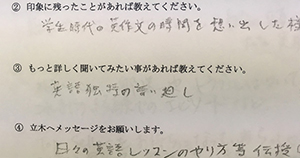 ② 印象に残ったことがあれば教えてください。
学生時代の英作文の時間を想い出した様
③ もっと詳しく聞いてみたい事があれば教えてください。
英語独特の言い回し
④ 立木へメッセージをお願いします。
日々の英語レッスンのやり方等伝授し